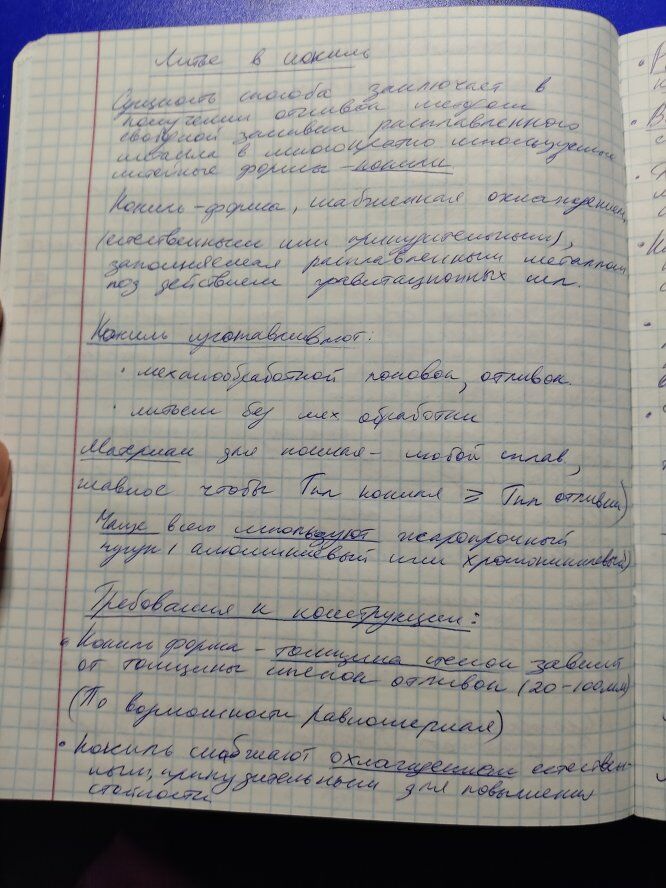 Литье в кокиль
Сущность способа заключает в
получении отливок методом
свободной заливки расплавленного
металла в многократно используемые
литейные формы - кокили
Кокиль-форма, снабженная охлаждением,
(естественными или принудительным),
заполняемая расплавленным металлом
под действием гравитационных сил.
Кокиль изготавливают:
• механообработкой поковок, отливок.
• литьем без мех обработки
Материал для кокиля - любой сплав,
главное чтобы Тпл кокиля ≥ Тпл отливки)
Чаще всего используют жаропрочный
чугун (алюминиевый или хромоникелевый)
Требования к конструкции:
• Кокиль форма - толщина стенок зависит
от толщины стенок отливок (20-100мм)
(По возможности равномерная)
• Кокиль снабжают охлаждением естествен-
ным, принудительными для повышения
стойкости